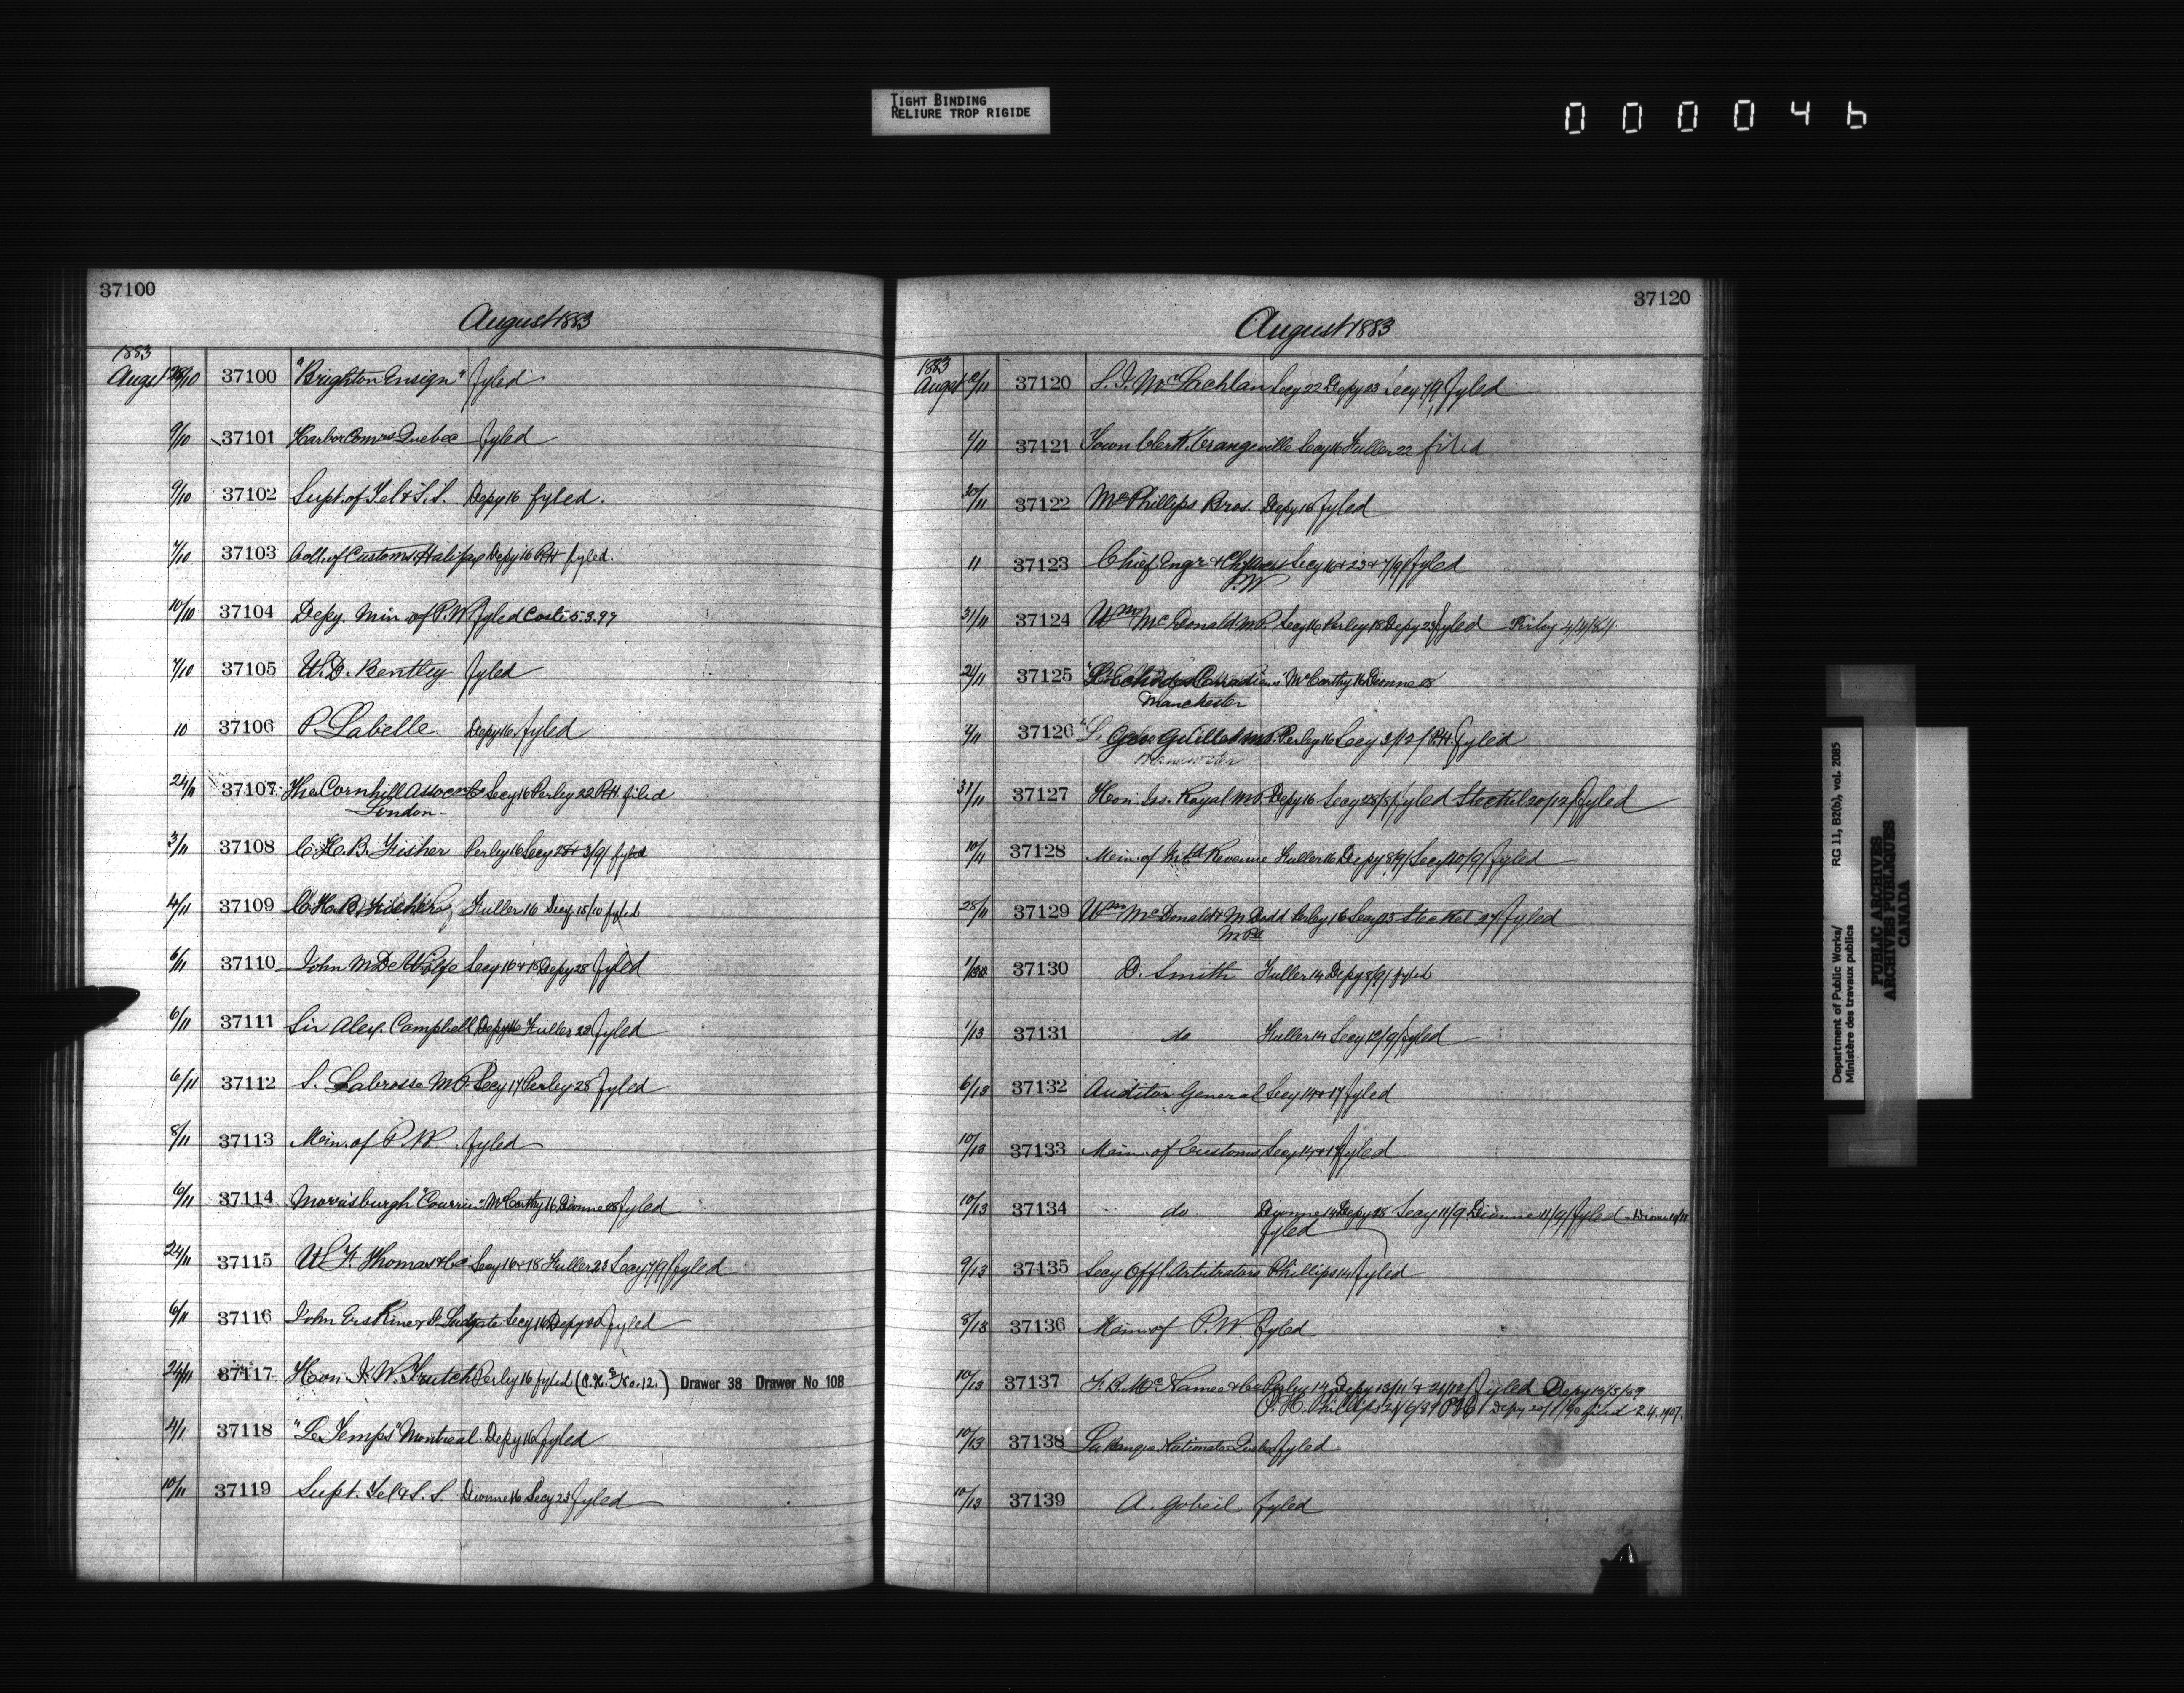 TIGHT BINDING
RELIURE TROP RIGIDE
000046
37100
August 1883
1883
Augst 28/10 37100 "Brighton Ensign" fyled
9/10 37101 Harbor Comrs Quebec fyled
9/10 37102 Supt. of Tel & S.S. Depy 16 fyled.
7/10 37103 Coll. of Customs Halifax Depy 16 P.H fyled.
10/10 37104 Depy. Min. of P.W fyled Coste 5.3.97
7/10 37105 W.D. Bentley fyled
10 37106 P. Labelle Depy 16 fyled
24/11 37107 The Cornhill Assoc Secy 16 Perley 22 P.H filed
London
3/11 37108 C.H.B. Fisher Perley 16 Secy 28 & 3/9/ fyled
4/11 37109 C.H.B. Fisher Fuller 16 Secy 15/10 fyled
6/11 37110 John M. De Wolfe Secy 16 & 18 Depy 28 fyled
6/11 37111 Sir Alex. Campbell Depy 16 Fuller 28 fyled
6/11 37112 S. Labrosse M.P. Secy 17 Perley 28 fyled
8/11 37113 Min. of P.W. fyled
6/11 37114 Morrisburgh "Courrier" McCarthy 16 Dionne 28 fyled
24/11 37115 W F. Thomas & Co Secy 16 & 18 Fuller 23 Secy 7/9/ fyled
6/11 37116 John Erskine & Ludgate Secy 16 Depy fyled
24/11 37117 Hon. J.W. Trutch Perley 16 fyled (P.H. No. 12.) Drawer 38 Drawer No 108
4/11 37118 "Le Temps" Montreal Depy 16 fyled
10/11 37119 Supt. Tel & S.S Dionne 16 Secy 23 fyled
37120
August 1883
1883
Augst /11 37120 S.J. McLachlan Secy 22 Depy 23 Secy 7/9/ fyled
/11 37121 Town Clerk Orangeville Secy 16 Fuller 22 filed
30/11 37122 McPhillips Bros. Depy 16 fyled
11 37123 Chief Engr & Ch. Secy 16 & 23 & 7/9/ fyled
P.W
31/11 37124 Wm McDonald M.P. Secy 16 Perley 18 Depy 23 fyled Perley 4/11/84
2/11 37125 McCarthy 16 Dionne 28
Manchester
2/11 37126 Geo Guillet M.P. Perley 16 Secy 3/12/ P.H. fyled
31/11 37127 Hon. Jos. Royal M.P. Depy 16 Secy 28/8/ fyled Steckel 20/12/ fyled
10/11 37128 Min. of Inld Revenue Fuller 16 Depy 8/9/ Secy 10/9/ fyled
28/11 37129 Wm McDonald & M Dodd Perley 16 Secy 25 Steckel 27 fyled
M.Ps
37130 D. Smith Fuller 14 Depy 8/9/ fyled
1/13 37131 do Fuller 14 Secy 12/9/ fyled
6/13 37132 Auditor General Secy 14 & 17 fyled
10/13 37133 Min. of Customs Secy 14 & 17 fyled
10/13 37134 do Dionne 14 Depy 28 Secy 11/9 Dionne 11/9/ fyled Dionne
fyled
9/13 37135 Secy Offl Arbitrators Phillips 14 fyled
8/13 37136 Min. of P.W. fyled
10/13 37137 F.B. McNamee & Co Perley 14 Depy 13/11/ & 21/12/ fyled Depy 13/3/89
P.H. Phillips 21/6/89 P.H. Depy filed 2.4.1907.
10/13 37138 La Banque Nationale Quebec fyled
10/13 37139 A. Gobeil fyled
Department of Public Works/ RG 11, B2(b), vol. 2085
Ministère des travaux publics
PUBLIC ARCHIVES
ARCHIVES PUBLIQUES
CANADA